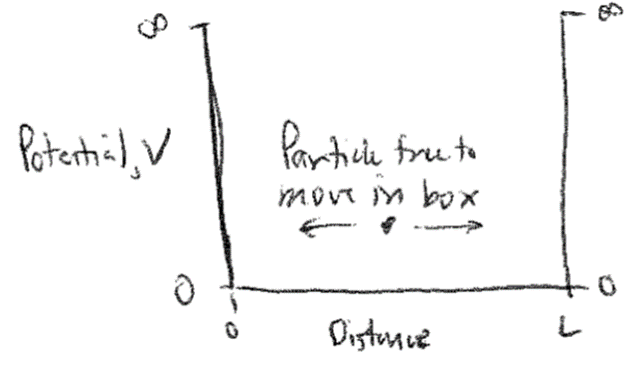 ∞ ∞
Potential, V
Particle free to
move in box
0 0
0 Distance L